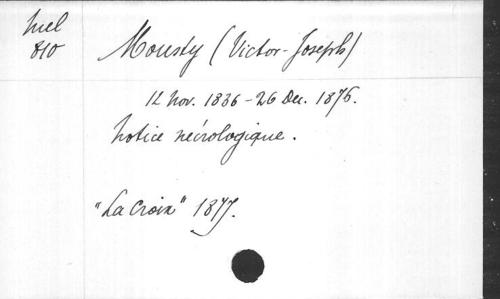 Mel
810
Mousty (Victor-Joseph)
12 Nov. 1836 - 26 Dec. 1876.
Notice nécrologique.
"La Croix" 1877.